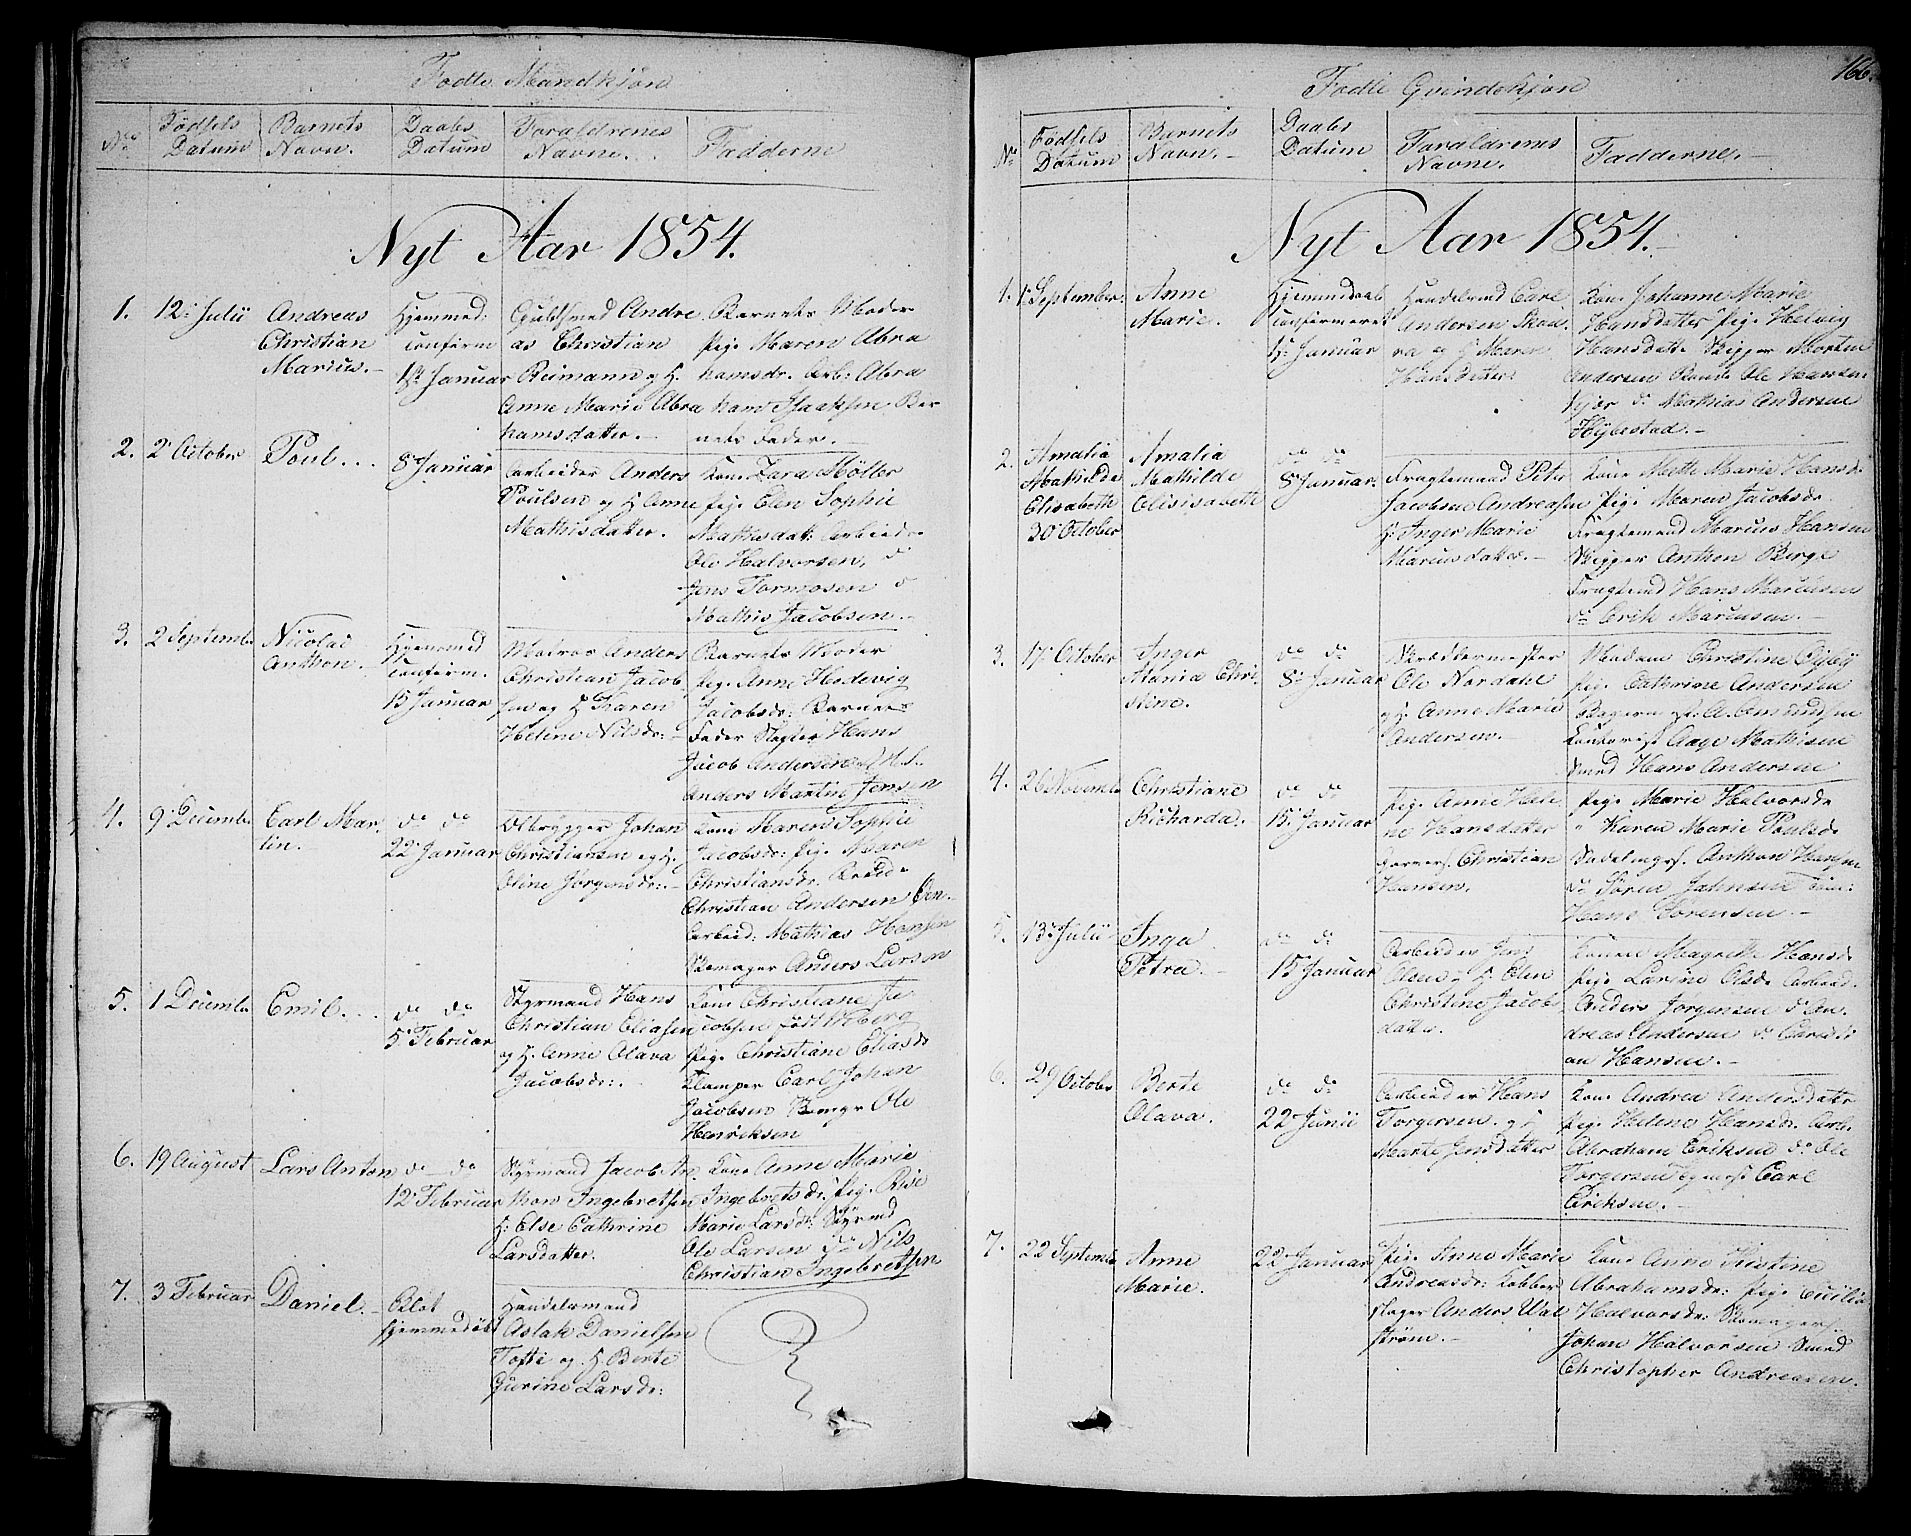 Fødte Mandkjøn
No
Fødsels Datum
Barnets Navn.
Daabs Datum
Foraldrenes Navne.
Fadderne
Nyt Aar 1854.
1.
12: Julii
Andreas
Christian
Marius.
Hjemmed:
confirm
Januar
Guldsmed Andre
as Christian
Reimann og H.
Anne Marie Abra
hamsdatter.
Barnets Moder
Pige Maren Abra
hamsdr. Arb: Abra
ham Isaaksen Bar
nets Fader.
2.
2 October
Poul
8 Januar
Arbeider Anders
Poulsen og H Anne
Mathisdatter.
Kone Zara Möller
Pige Elen Sophie
Mathisdatt: Arbeider
Ole Halvorsen, do
Jens Tormosen do
Mathis Jacobsen.
3.
2 Septembr
Nicolai
Anthon.
Hjemmed
Confirm.
15 Januar
Matros Anders
Christian Jacob
sen og H Karen
Helene Nilsdr:
Barnets Moder
Pige Anne Hedevig
Jacobsdr: Barnets
Fader Hans
Jacob Andersen
Anders Martin Jensen
4.
9 Decembr
Carl Mar
tin.
do do
22 Januar
Ölbrygger Johan
Christiansen og H.
Oline Jørgensdr:
Kone Karen Sophie
Jacobsdr: Pige Maren
Christiansdr.
Christian Andersen
Arbeid: Mathias Hansen
Skomager Anders Larsen
5.
1 Decembr
Emil
do do
5 Februar
Styrmand Hans
Christian Eliasen
og H. Anne Olava
Jacobsdr:
Kone Christiane Ja
cobsen født Wiberg
Pige Christiane Eliasdr
Klamper Carl Johan
Jacobsen Ole
Henriksen
6.
19 August
Lars Anton
do do
12 Februar
Styrmand Jacob An
thon Ingebretsen
H. Else Cathrine
Larsdatter.
Kone Anne Marie
Ingebretsdr: Pige
Marie Larsdr: Styrmd
Ole Larsen do Nils
Christian Ingebretsen
7.
3 Februar
Daniel
Blot
hjemmedøbt
Handelsmand
Aslak Danielsen
Tofte og H Berte
Gurine Larsdr:
166.
Fødte Qvindekjøn
No
Fødsels Datum
Barnets Navn.
Daabs Datum
Foraldrenes Navne.
Fadderne.
Nyt Aar 1854.
1.
1 September
Anne
Marie.
Hjemmedaab
confirmeret
Januar
Handelsmd Carl
Andersen
og H Maren
Hansdatter:
Kone Johanne Marie
Hansdatter Pige Helvig
Hansdatt: Skipper Morten
Andersen Ole Hansen
do Mathias Andersen
2.
Amalia
Mathilde
Elisabeth
30 October
Amalia
Mathilde
Elisisabeth
do do
8 Januar.
Fragtemand Peter
Jacobsen Andreasen
H: Inger Marie
Marcusdatter.
Kone Mette Marie Hansdr
Pige Maren Jacobsdr
Fragtemand Marcus Hansen
Skipper Anthon Berge
Fragtemd Hans Marcusen
do Erik Marcusen.
3.
17 October
Inger
Maria Chri
stine.
do do
8 Januar
Skræddermester
Ole Nordahl
og H: Anne Marie
Andersen.
Madam Christine
Pige Cathrine Andersen
A. Amundsen
Aage Mathisen
Smed Hans Andersen
4.
26 Novembr
Christiane
Richarda.
do do
15 Januar
Pige Anne Hele
ne Hansdatter
Garvers. Christian
Hansen.
Pige Marie Halvorsdr
" Karen Marie Poulsdr
Sadelmgrs. Anthon Hansen
do Søren Johnsen
Hans Sørensen.
5.
13 Julii
Inga
Petra.
do do
15 Januar
Arbeider Jens
Olsen og H. Elen
Christine Jacobs
datter.
Konen Magrethe Hansdr
Pige Larine Olsdr Arbeid.
Anders Jørgensen do An
dreas Andersen do Christi
an Hansen.
6.
29 October
Berte
Olava.
do do
22 Junii
Arbeider Hans
Torgersen og
Marte Jensdatter
Kone Andrea Andersdatr
Pige Helene Hansdr Arb.
Abraham Eriksen do Ole
Torgersen Carl
Eriksen.
7.
22 Septembr
Anne
Marie.
22 Januar
Pige Anne Marie
Andreasdr: Kobber
slager Anders Wal
strøm.
Kone Anne Kristine
Abrahamsdr: Pige Cicilie
Halvorsdr: Skomagers.
Johan Halvorsen Smed
Christopher Andreasen.